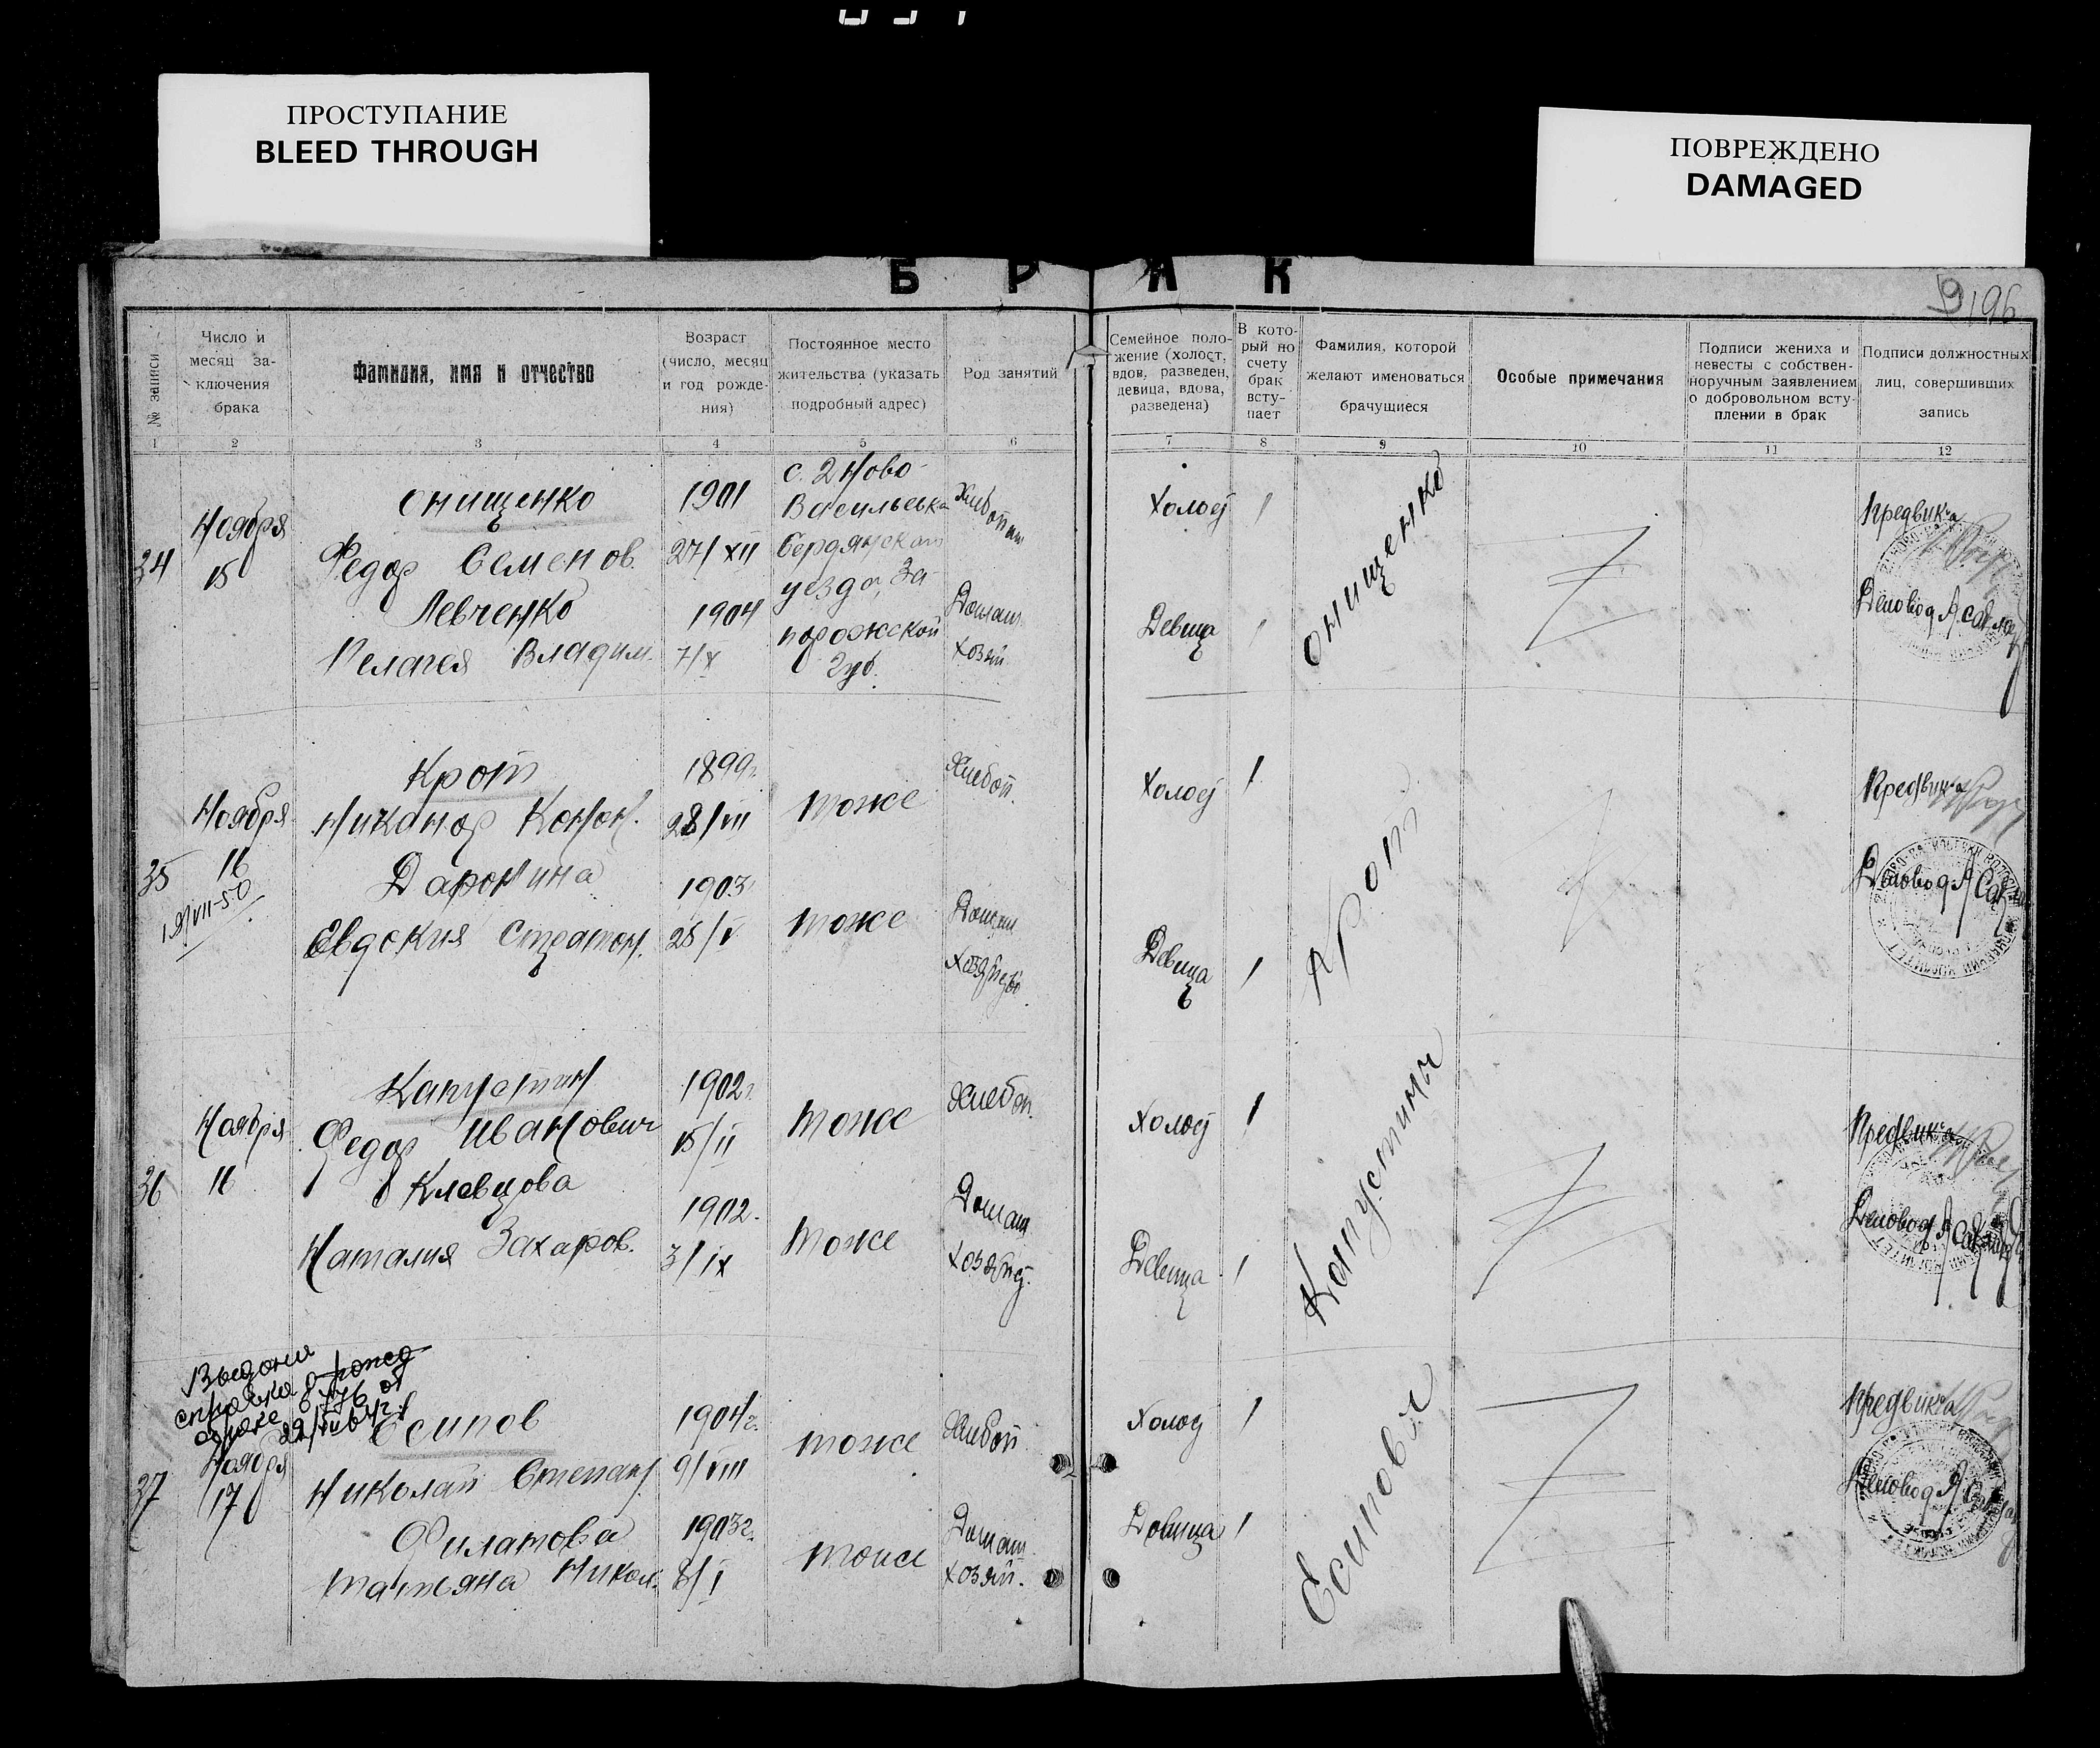 ПРОСТУПАНИЕ
BLEED THROUGH
ПОВРЕЖДЕНО
DAMAGED
БРАК
9 196
№ записи
Число и
месяц за-
ключения
брака
Фамилия, имя и отчество
Возраст
(число, месяц
и год рожде-
ния)
Постоянное место
жительства (указать
подробный адрес)
Род занятий
Семейное поло-
жение (холост,
вдов, разведен,
девица, вдова,
разведена)
В кото-
рый по
счету
брак
всту-
пает
Фамилия, которой
желают именоваться
брачущиеся
Особые примечания
Подписи жениха и
невесты с собствен-
норучным заявлением
о добровольном всту-
плении в брак
Подписи должностных
лиц, совершивших
запись
1 2 3 4 5 6 7 8 9 10 11 12
34
Ноября
15
Онищенко
Федор Семенов.
Левченко
Пелагея Владим.
1901
27/XII
1904
7/X
с. 2 Ново-
Васильевка
Бердянского
уезда, За-
порожской
Губ.
Хлебопаш
Домаш.
хозяй.
Холост 1
Девица 1
Онищенко
Предвик-а
Деловод
35
Ноября
16
19/VII-50
Крот
Никанор Конон.
Даронина
Евдокия Стратон.
1899г.
28/VII
1903г.
25/V
тоже
тоже
Хлебоп.
Домаш
Холост 1
Девица 1
Крот
Предвик-а
Деловод
36
Ноября
16
Капустин
Федор Иванович
Клевцова
Наталия Захаров.
1902г.
15/II
1902.
3/IX
тоже
тоже
Хлебоп.
Домаш
Холост 1
Девица 1
Капустины
Предвик-а
Деловод
Выдана
справка о рожд
браке 8776 от
37
Ноября
17
Есипов
Николай Степан.
Филатова
Татьяна Никол.
1904г.
9/VIII
1903г.
8/I
тоже
тоже
Хлебоп
Домаш
хозяй.
Холост 1
Девица 1
Есиповы
Предвик-а
Деловод